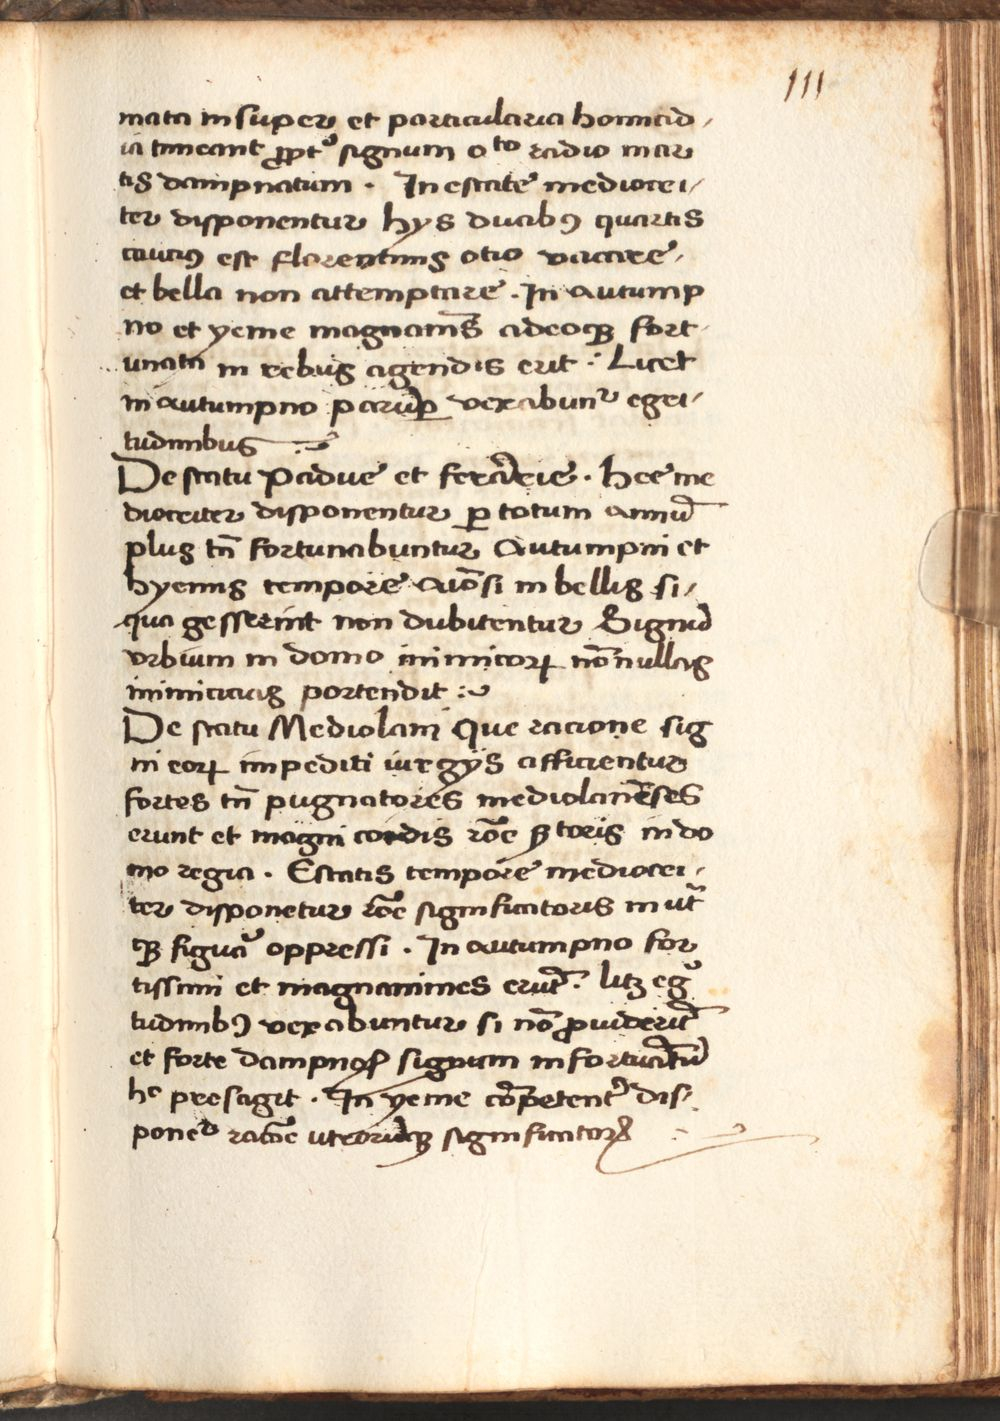 111
mata insuper et particularia homicid,
ia timeant ꝓpt' signum oto radio mar
tis dampnatum . In estate mediocri/
ter disponentur hys duabꝰ quartis
tauciꝰ est florentinis otio vacare,
et bella non attemptare . In autump
no et yeme magnanis adeoqꝫ fort
unata in rebus agendis erit : Licet
in autumpno parumꝑ vexabunt' egri/
tudinibus
De statu Padue et ferarie . hee me
diocriter disponentur ꝑ totum annū
plus tn̄ fortunabuntur Autumpni et
hyemis tempore Aiōsi in bellis si/
qua gesserint non dubitentur Signū
vrbium in domo inimicoꝝ nōnullas
inimicicias portendit :
De statu Mediolani Que racione sig
ni eoꝝ impediti iurgijs afficientur
fortes tn̄ pugnatores mediolanēses
erunt et magni cordis rōe in do
mo regia . Estatis tempore mediocri,
ter disponetur rōe significatoris in ut̄
qꝫ figura oppressi . In autumpno for
tissimi et magnanimes erūt : litꝫ eg'
tudinibꝰ vexabuntur si nō ꝓuiderīt
et forte dampnos signum infortunatū
hc presagit . In yeme cōpetent' dis,
poned racōe utrorumqꝫ significatorꝭ